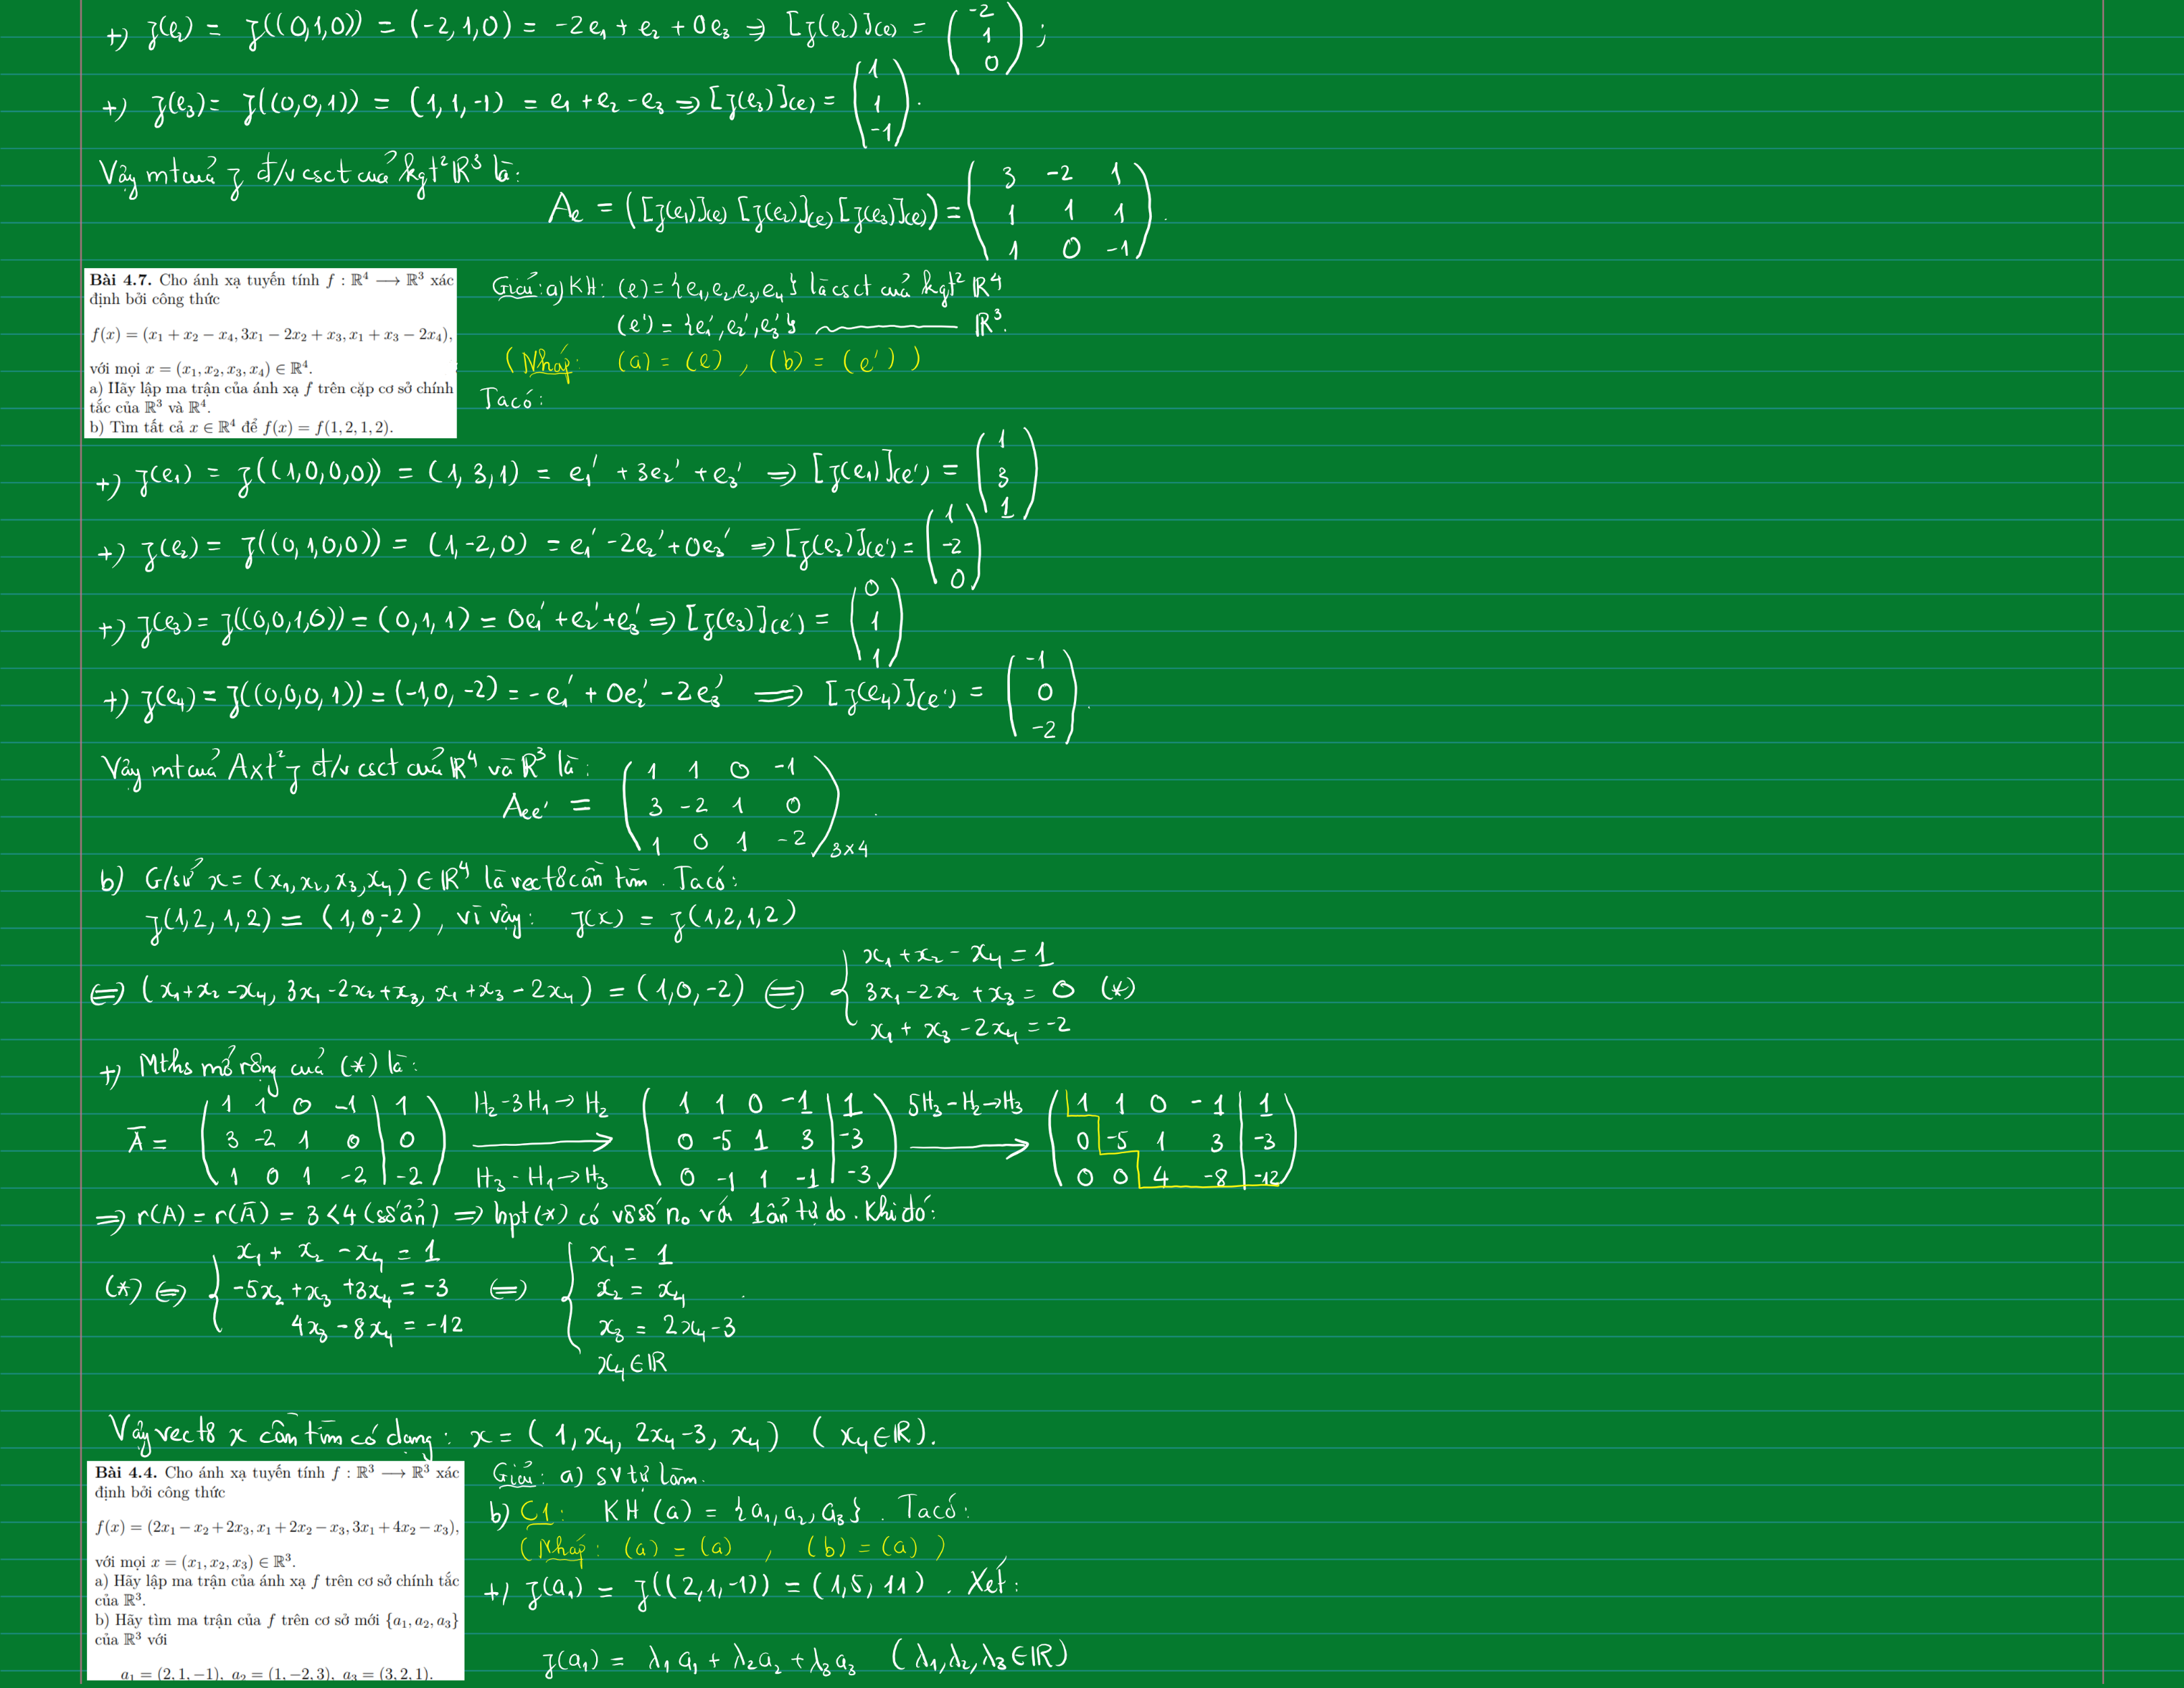 +) f(e₂) = f((0,1,0)) = (-2,1,0) = -2e₁ + e₂ + 0e₃ ⇒ [f(e₂)](e) = (-2 1 0);
+) f(e₃) = f((0,0,1)) = (1,1,-1) = e₁ + e₂ - e₃ ⇒ [f(e₃)](e) = (1 1 -1).
Vậy mt của f đ/v csct của kgt² ℝ³ là:
Ae = ([f(e₁)](e) [f(e₂)](e) [f(e₃)](e)) = (3 -2 1
1 1 1
1 0 -1).
Bài 4.7. Cho ánh xạ tuyến tính f : ℝ⁴ ⟶ ℝ³ xác
định bởi công thức
f(x) = (x₁ + x₂ − x₄, 3x₁ − 2x₂ + x₃, x₁ + x₃ − 2x₄),
với mọi x = (x₁, x₂, x₃, x₄) ∈ ℝ⁴.
a) Hãy lập ma trận của ánh xạ f trên cặp cơ sở chính
tắc của ℝ³ và ℝ⁴.
b) Tìm tất cả x ∈ ℝ⁴ để f(x) = f(1, 2, 1, 2).
Giải: a) KH: (e) = {e₁, e₂, e₃, e₄} là csct của kgt² ℝ⁴
(e') = {e₁', e₂', e₃'} ~ ℝ³.
(Nháp: (a) = (e) , (b) = (e') )
Ta có:
+) f(e₁) = f((1,0,0,0)) = (1,3,1) = e₁' + 3e₂' + e₃' ⇒ [f(e₁)](e') = (1 3 1)
+) f(e₂) = f((0,1,0,0)) = (1,-2,0) = e₁' - 2e₂' + 0e₃' ⇒ [f(e₂)](e') = (1 -2 0)
+) f(e₃) = f((0,0,1,0)) = (0,1,1) = 0e₁' + e₂' + e₃' ⇒ [f(e₃)](e') = (0 1 1)
+) f(e₄) = f((0,0,0,1)) = (-1,0,-2) = -e₁' + 0e₂' - 2e₃' ⇒ [f(e₄)](e') = (-1 0 -2).
Vậy mt của Axt² f đ/v csct của ℝ⁴ và ℝ³ là:
Aee' = (1 1 0 -1
3 -2 1 0
1 0 1 -2)3×4.
b) G/sử x = (x₁, x₂, x₃, x₄) ∈ ℝ⁴ là vectơ cần tìm. Ta có:
f(1,2,1,2) = (1,0,-2), vì vậy: f(x) = f(1,2,1,2)
⇔ (x₁+x₂-x₄, 3x₁-2x₂+x₃, x₁+x₃-2x₄) = (1,0,-2) ⇔ { x₁+x₂-x₄ = 1
3x₁-2x₂+x₃ = 0 (*)
x₁+x₃-2x₄ = -2
+) Mths mở rộng của (*) là:
Ā = (1 1 0 -1 | 1
3 -2 1 0 | 0
1 0 1 -2 | -2)
H₂-3H₁→H₂
H₃-H₁→H₃
(1 1 0 -1 | 1
0 -5 1 3 | -3
0 -1 1 -1 | -3)
5H₃-H₂→H₃
(1 1 0 -1 | 1
0 -5 1 3 | -3
0 0 4 -8 | -12)
⇒ r(A) = r(Ā) = 3 < 4 (số ẩn) ⇒ hpt (*) có vô số no với 1 ẩn tự do. Khi đó:
(*) ⇔ { x₁ + x₂ - x₄ = 1
-5x₂ + x₃ + 3x₄ = -3
4x₃ - 8x₄ = -12
⇔ { x₁ = 1
x₂ = x₄
x₃ = 2x₄-3
x₄ ∈ ℝ
.
Vậy vectơ x cần tìm có dạng: x = (1, x₄, 2x₄-3, x₄) (x₄ ∈ ℝ).
Bài 4.4. Cho ánh xạ tuyến tính f : ℝ³ ⟶ ℝ³ xác
định bởi công thức
f(x) = (2x₁ − x₂ + 2x₃, x₁ + 2x₂ − x₃, 3x₁ + 4x₂ − x₃),
với mọi x = (x₁, x₂, x₃) ∈ ℝ³.
a) Hãy lập ma trận của ánh xạ f trên cơ sở chính tắc
của ℝ³.
b) Hãy tìm ma trận của f trên cơ sở mới {a₁, a₂, a₃}
của ℝ³ với
a₁ = (2, 1, −1), a₂ = (1, −2, 3), a₃ = (3, 2, 1).
Giải: a) SV tự làm.
b) C1: KH (a) = {a₁, a₂, a₃}. Ta có:
(Nháp: (a) = (a) , (b) = (a) )
+) f(a₁) = f((2,1,-1)) = (1,5,11). Xét:
f(a₁) = λ₁a₁ + λ₂a₂ + λ₃a₃ (λ₁, λ₂, λ₃ ∈ ℝ)